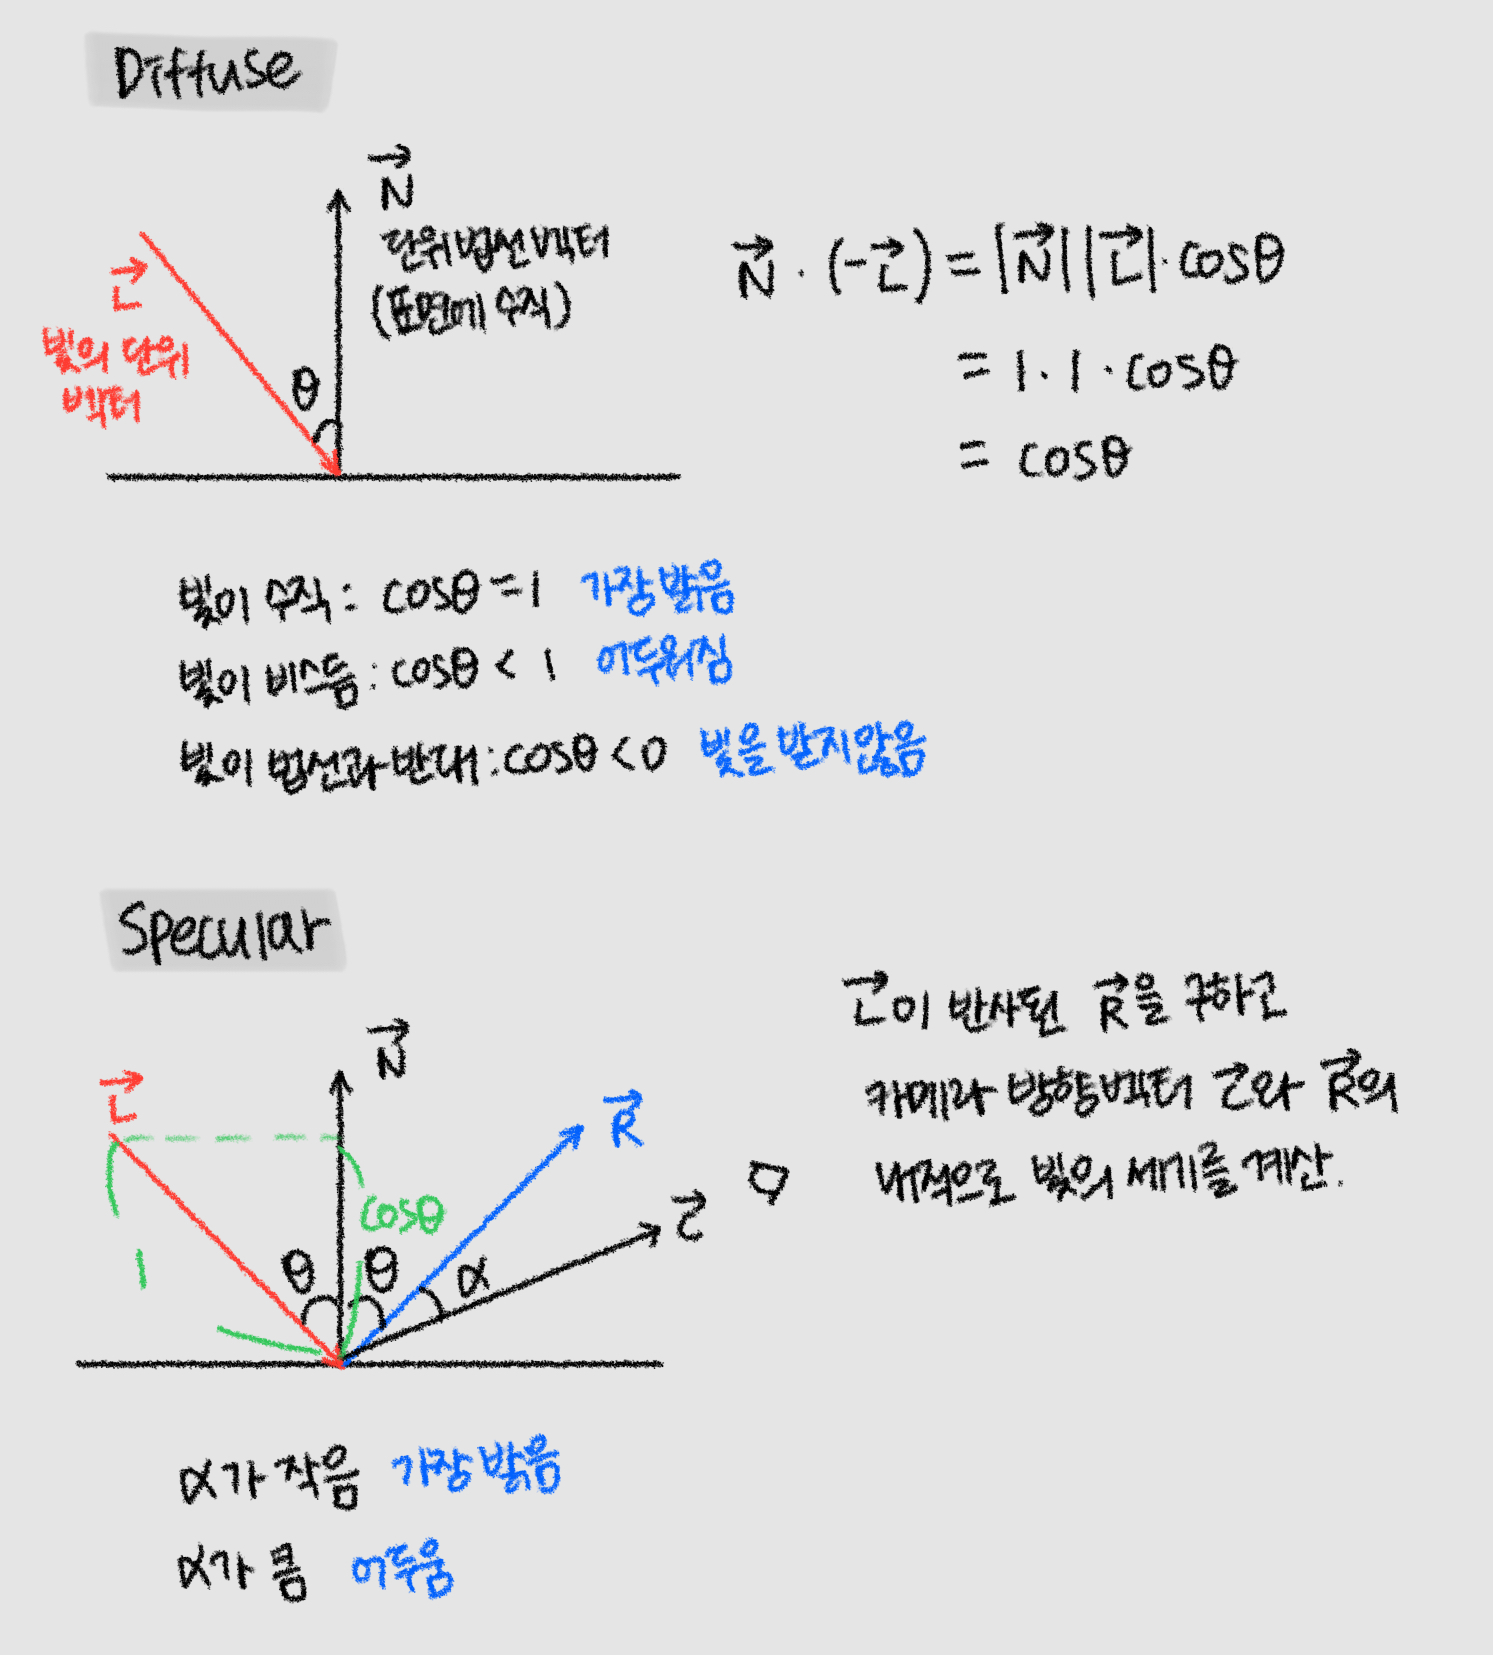 Diffuse
N
단위 법선 벡터
(표면에 수직)
L
빛의 단위
벡터
θ
N · (-L) = |N||L| · cosθ
= 1 · 1 · cosθ
= cosθ
빛이 수직 : cosθ = 1 가장 밝음
빛이 비스듬 : cosθ < 1 어두워짐
빛이 법선과 반대 : cosθ < 0 빛을 받지않음
Specular
N
L
R
C
cosθ
θ θ α
L이 반사된 R을 구하고
카메라 방향벡터 C와 R의
내적으로 빛의 세기를 계산.
α가 작음 가장 밝음
α가 큼 어두움